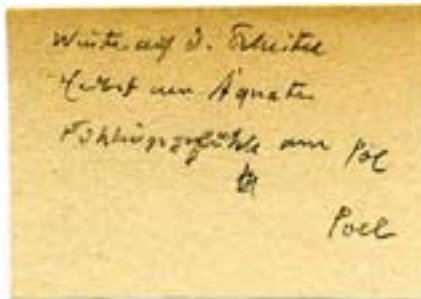 Winter auf d. Scheitel
Herbst am Äquator
Frühlingsgefühle am Pol
Poel